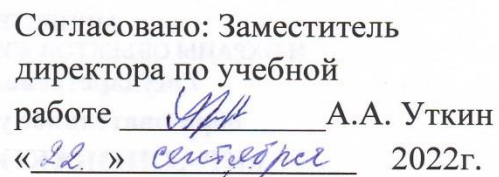 Согласовано: Заместитель
директора по учебной
работе ____________ А.А. Уткин
«22» сентября 2022г.